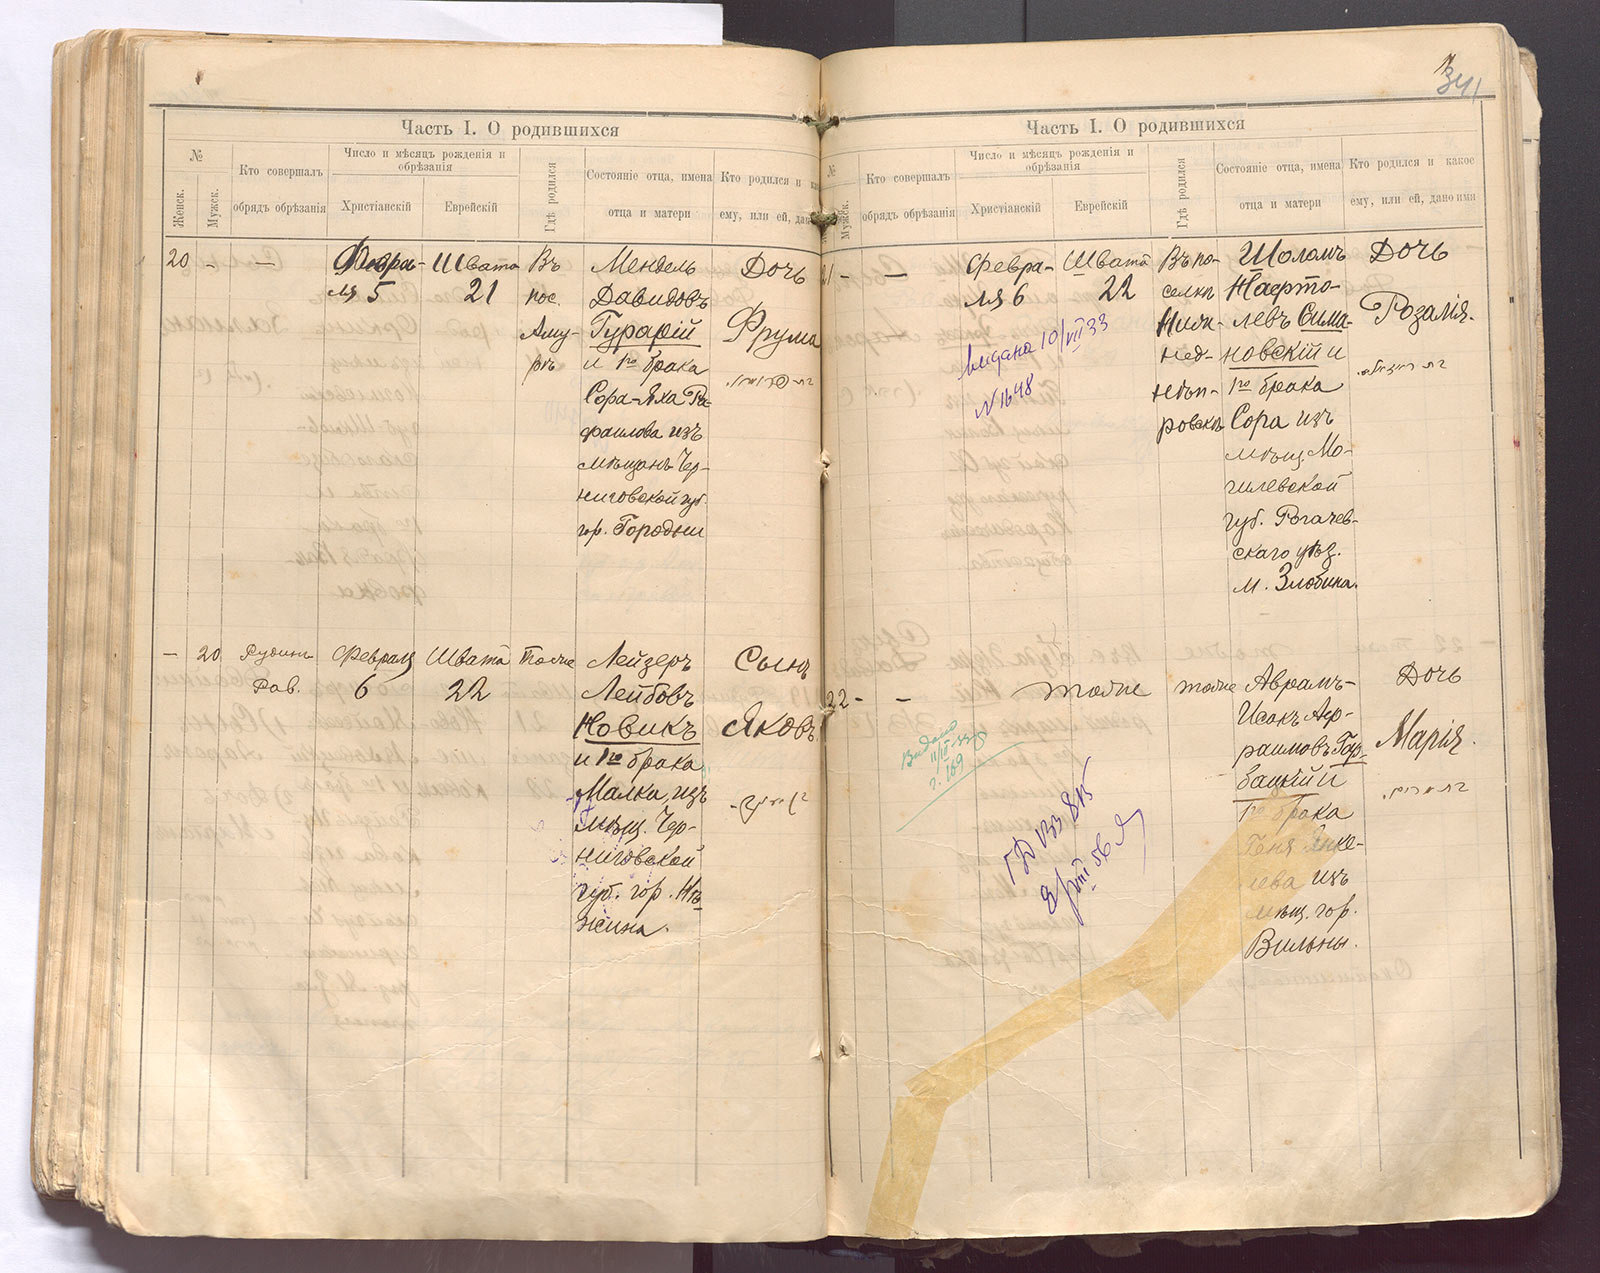 341
Часть I. О родившихся
№
Женск.
Мужск.
Кто совершалъ
обрядъ обрѣзанія
Число и мѣсяцъ рожденія и
обрѣзанія
Христіанскій
Еврейскій
Гдѣ родился
Состояніе отца, имена
отца и матери
Кто родился и как
ему, или ей, дан
20
-
—
Февра-
ля 5
Швата
21
Въ
пос.
Аму-
рѣ
Мендель
Давидовъ
Гурарій
и 1го брака
Сора-Яха Ра-
фаилова изъ
мѣщанъ Чер-
ниговской губ.
гор. Городни
Дочь
Фрума
—
20
Рудинъ
Рав.
Февраля
6
Швата
22
Тоже
Лейзеръ
Лейбовъ
Новикъ
и 1го брака
Малка, изъ
мѣщ. Чер-
ниговской
губ. гор. Нѣ-
жина.
Сынъ
Яковъ.
Часть I. О родившихся
№
Мужск.
Кто совершалъ
обрядъ обрѣзанія
Число и мѣсяцъ рожденія и
обрѣзанія
Христіанскій
Еврейскій
Гдѣ родился
Состояніе отца, имена
отца и матери
Кто родился и какое
ему, или ей, дано имя
21
-
—
Февра-
ля 6
Швата
22
видана 10/VII 33
N 1648
Въ по-
селкѣ
Нижн-
нед-
нѣпп-
ровскѣ
Шоломъ
Нафто-
левъ Сима-
новскій и
1го брака
Сора изъ
мѣщ. Мо-
гилевской
губ. Рогачев-
скаго уѣз.
м. Злобина.
Дочь
Розалія.
22
-
-
тоже
тоже
Аврамъ-
Исакъ Аер-
раимовъ Гар-
бацкій и
1го брака
Геня Янке-
лева изъ
мѣщ. гор.
Вильны.
Дочь
Марія.